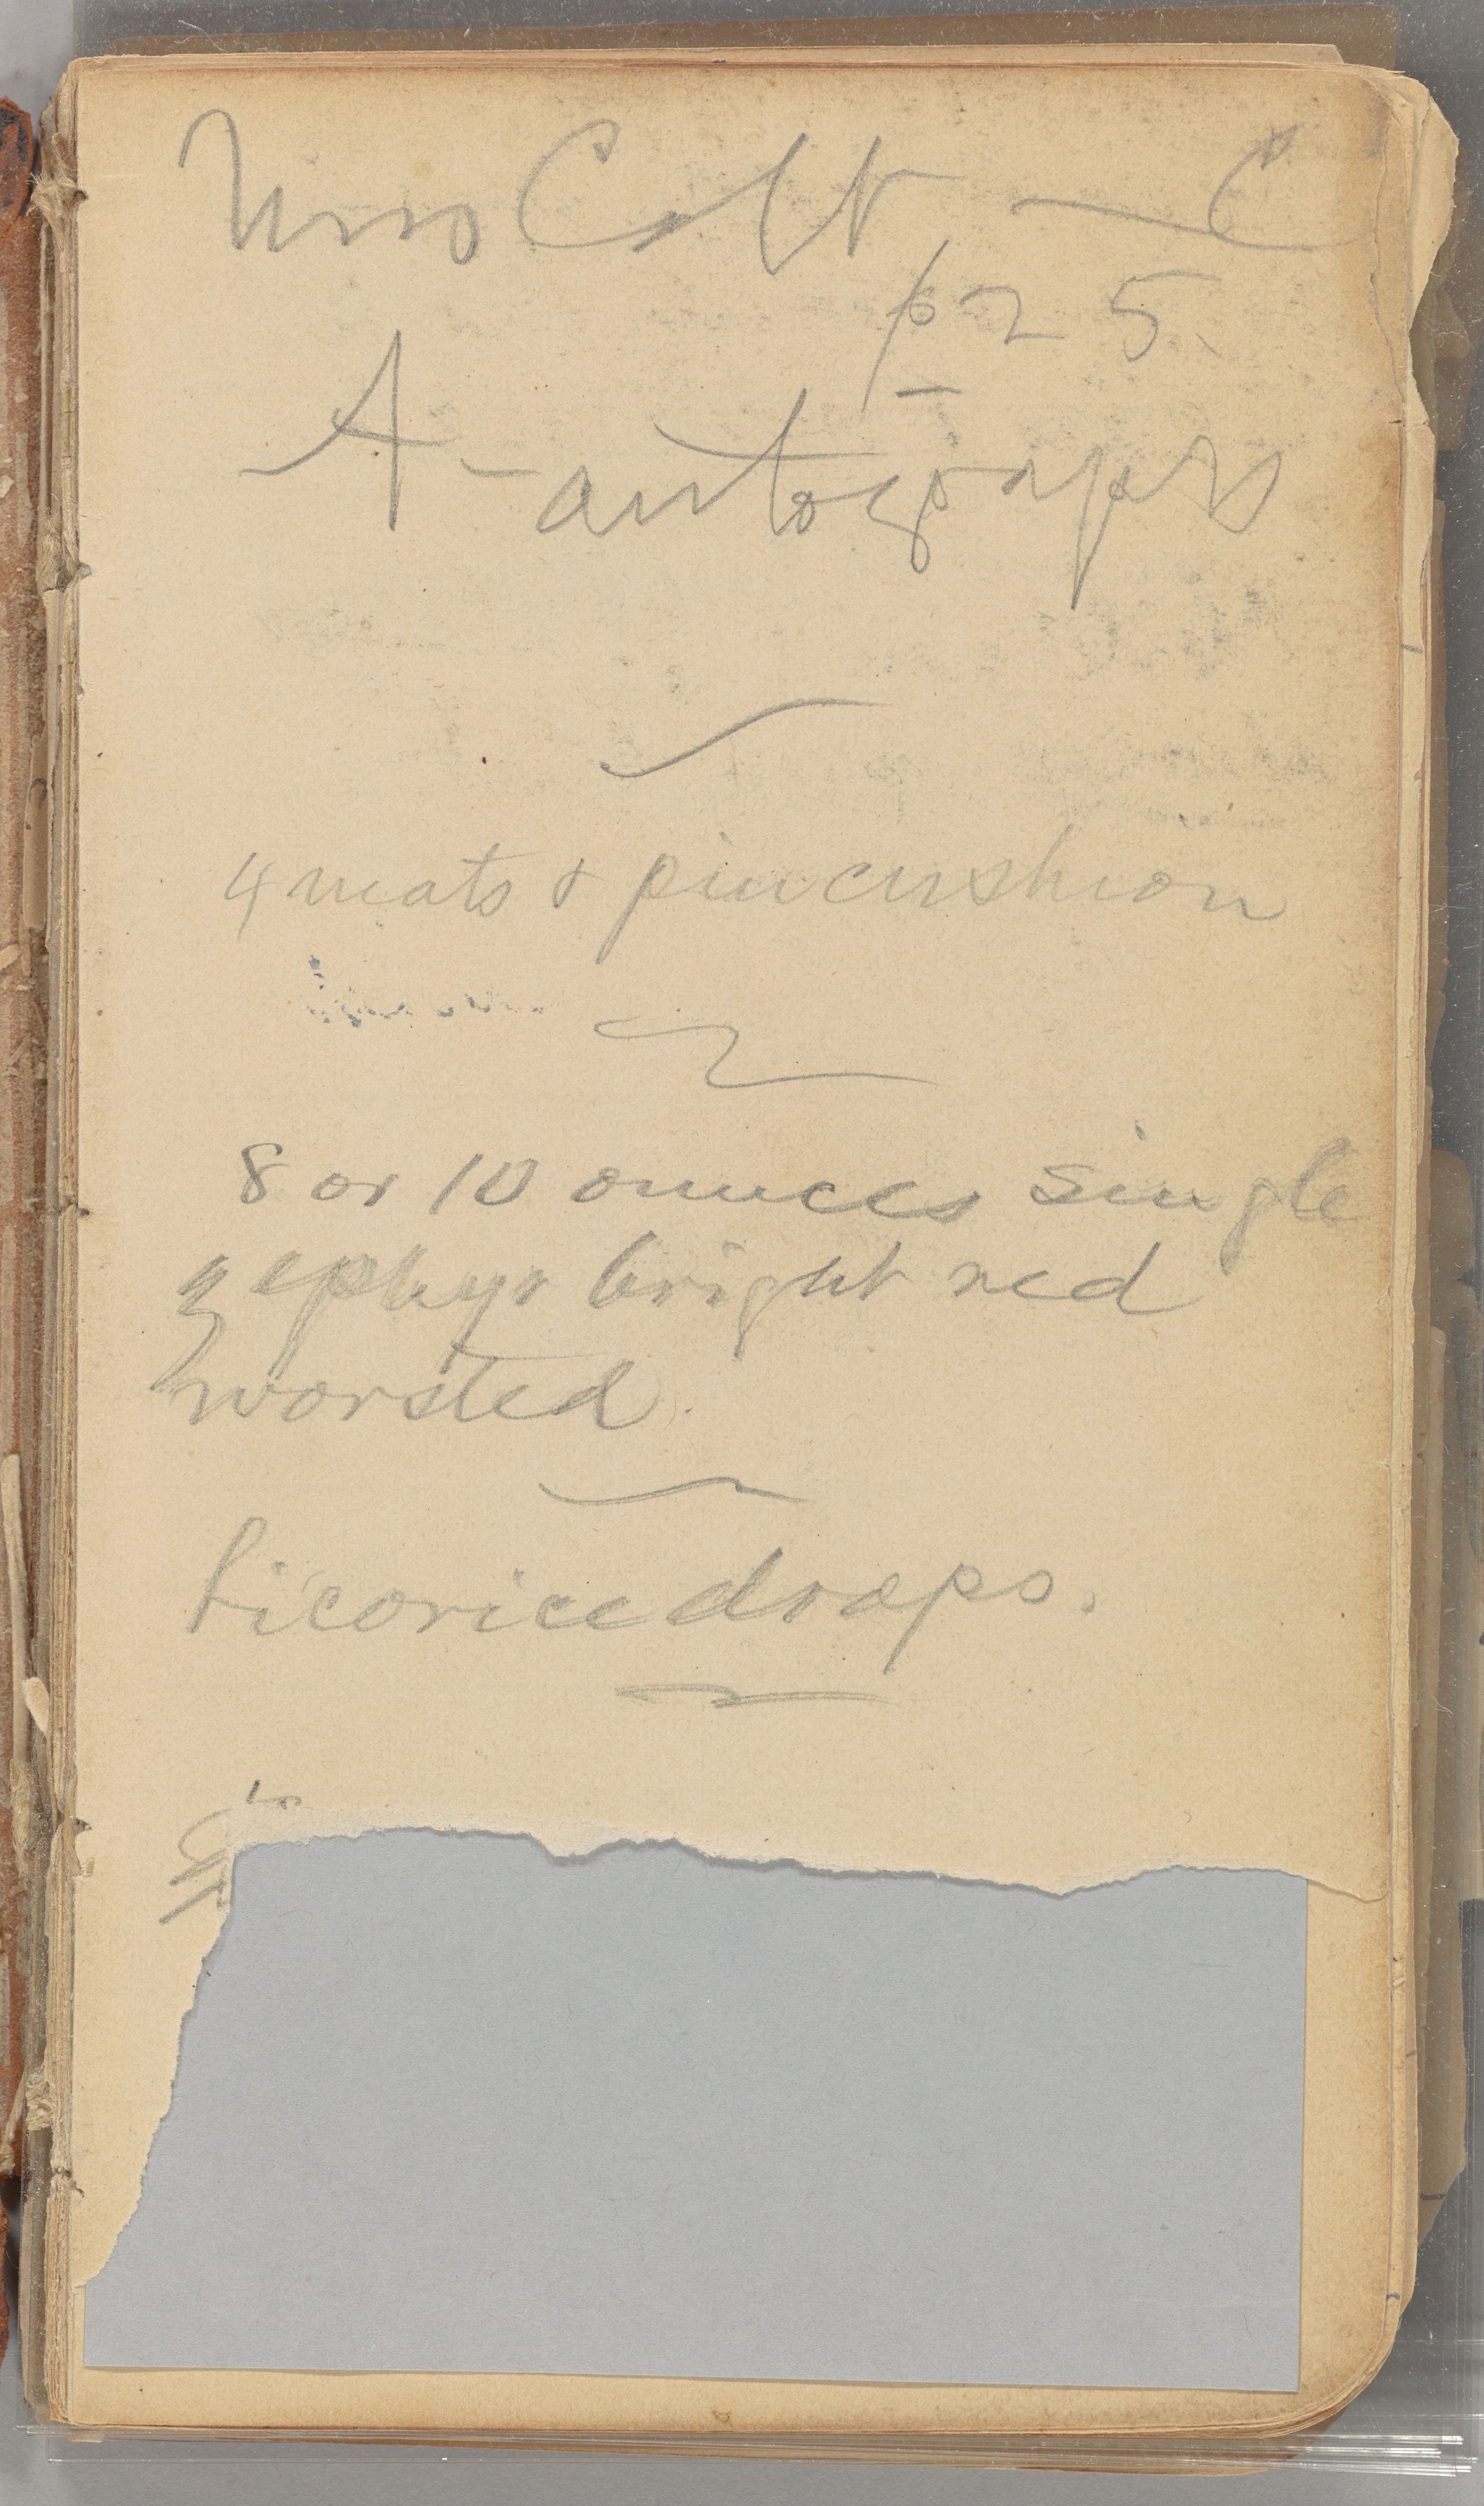 Mrs Colt — C
p 25
A - autograps
4 mats & pincushion
8 or 10 ounces single
zephyr bright red
worsted.
Licorice drops.